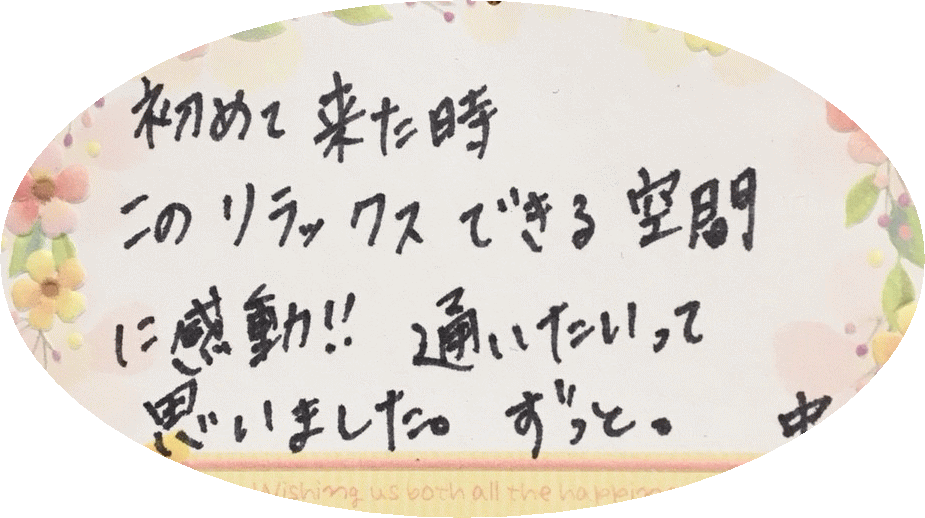 初めて来た時
このリラックスできる空間
に感動!! 通いたいって
思いました。ずっと。 中
Wishing us both all the happin